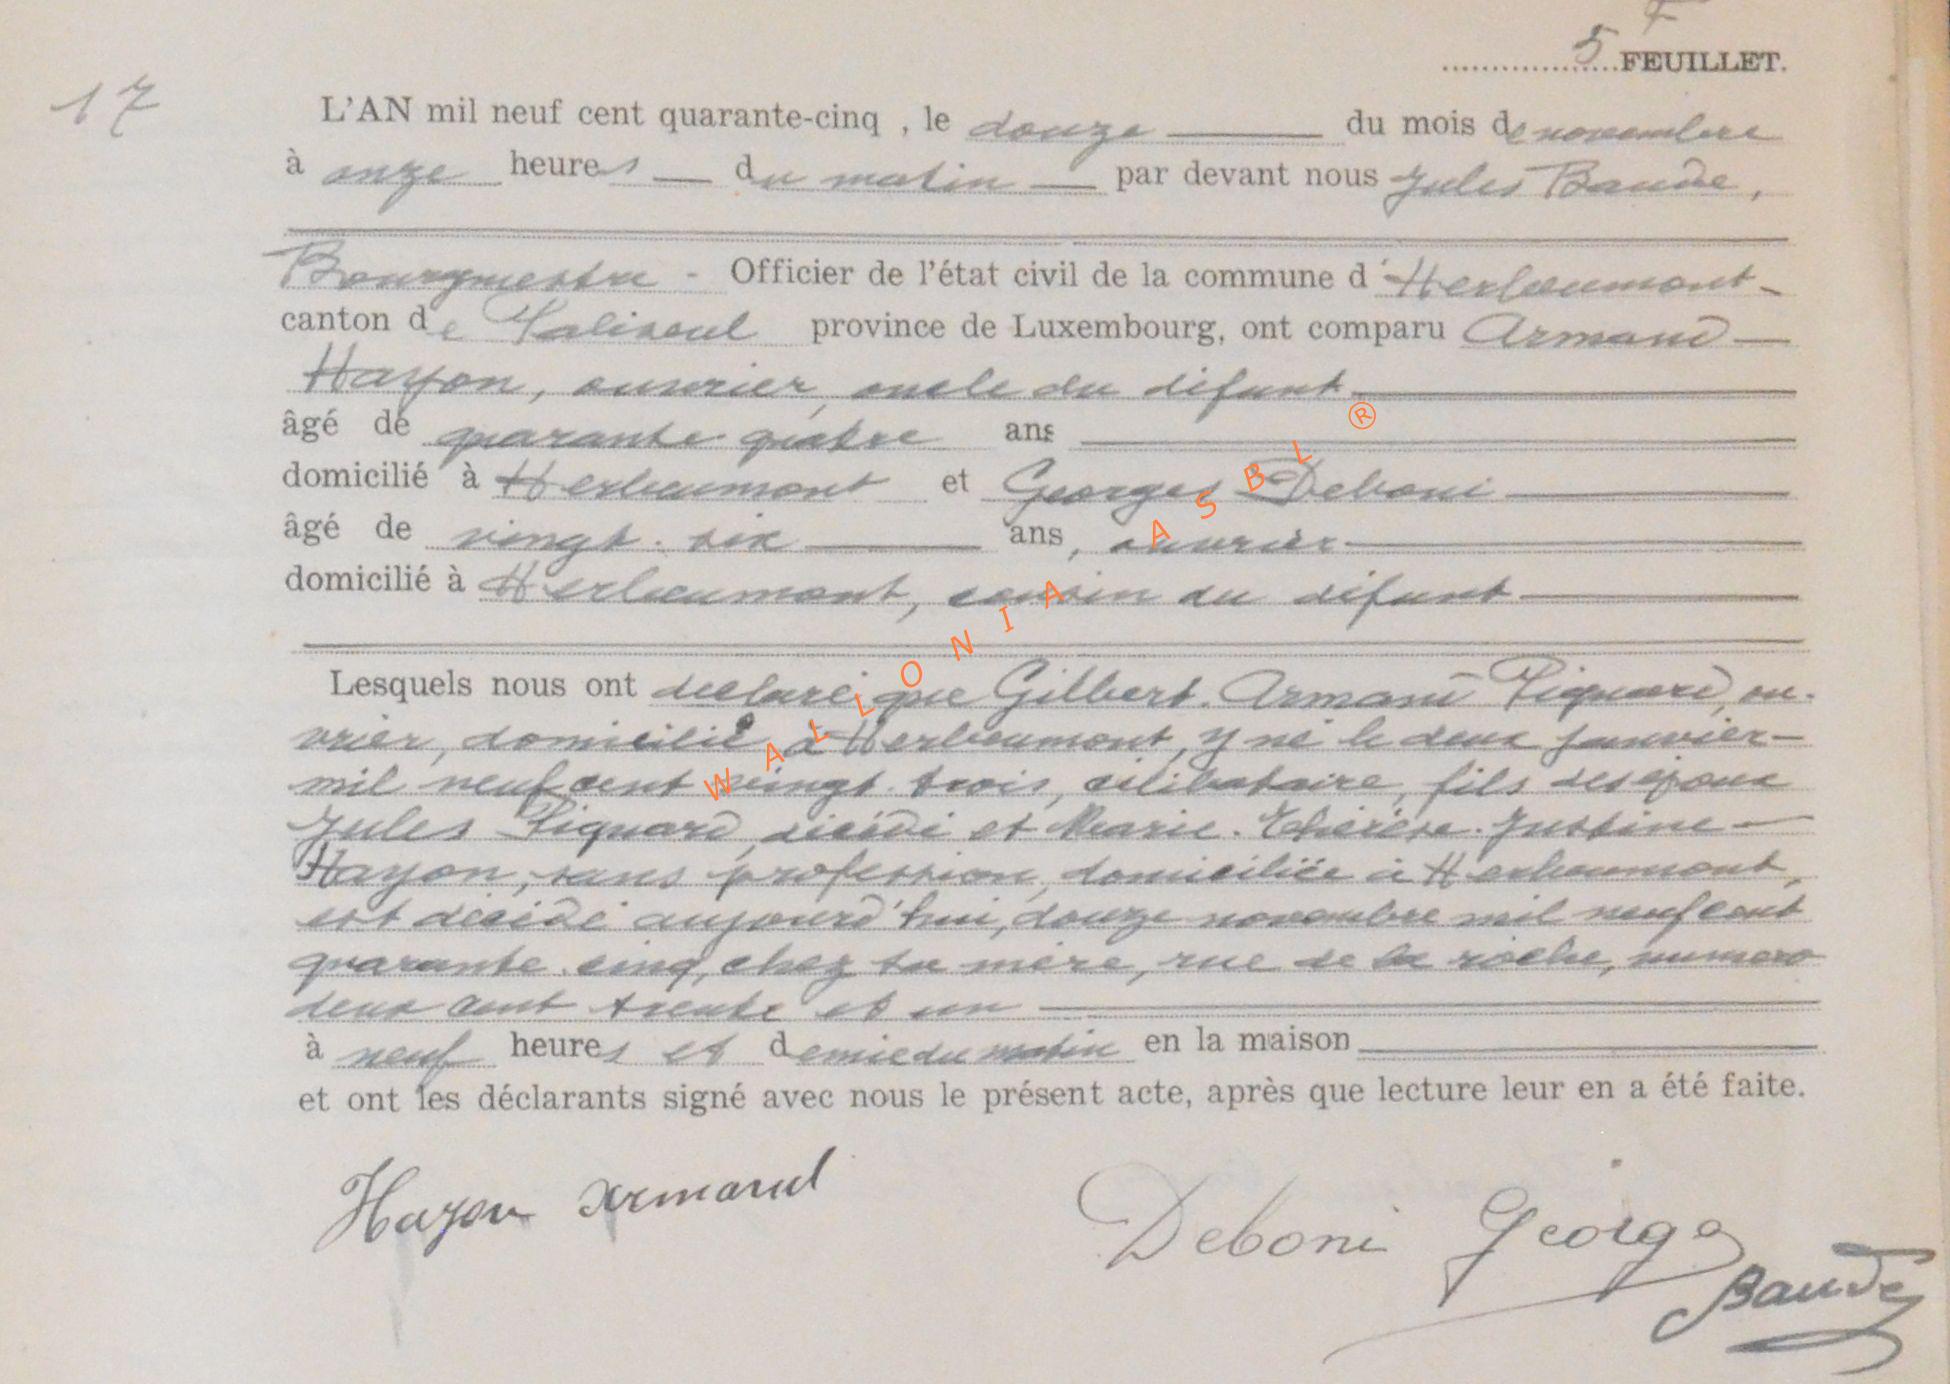 5 FEUILLET.
17
L'AN mil neuf cent quarante-cinq , le douze du mois de novembre
à onze heures du matin par devant nous Jules Baude,
Bourgmestre - Officier de l'état civil de la commune d'Herbeumont
canton de Paliseul province de Luxembourg, ont comparu Armand
Hayon, ouvrier, oncle du défunt
âgé de quarante-quatre ans
domicilié à Herbeumont et Georges Deboni
âgé de vingt-six ans, ouvrier
domicilié à Herbeumont, cousin du défunt
Lesquels nous ont déclaré que Gilbert-Armand Piquard, ou-
vrier, domicilié à Herbeumont, y né le deux janvier
mil neuf cent vingt-trois, célibataire, fils des époux
Jules Piquard, décédé et Marie-Thérèse-Justine
Hayon, sans profession, domiciliée à Herbeumont,
est décédé aujourd'hui, douze novembre mil neuf cent
quarante-cinq, chez sa mère, rue de la roche, numéro
deux cent trente et un
à neuf heures et demie du matin en la maison
et ont les déclarants signé avec nous le présent acte, après que lecture leur en a été faite.
Hayon Armand
Deboni George
Baude
WALLONIA ASBL ®